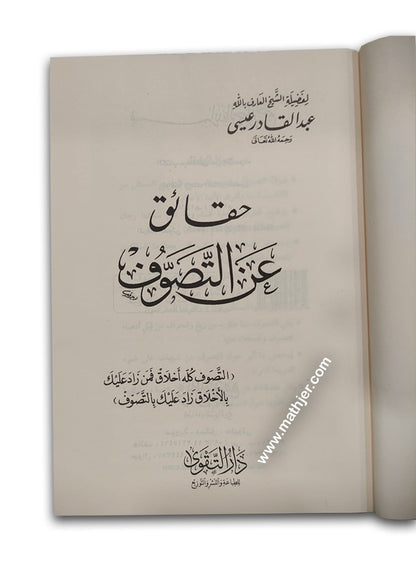 لِفَضِيلَةِ الشَّيْخِ العَارِفِ بِاللهِ
عبد القادر عيسى
رَحِمَهُ اللهُ تَعَالَى
حقائق
عَنِ التَّصَوُّفِ
(التَّصَوُّفُ كُلُّهُ أَخْلَاقٌ فَمَنْ زَادَ عَلَيْكَ
بِالأَخْلَاقِ زَادَ عَلَيْكَ بِالتَّصَوُّفِ)
دَارُ التَّقْوَى
لِلطِّبَاعَةِ وَالنَّشْرِ وَالتَّوْزِيعِ
www.mathjer.com